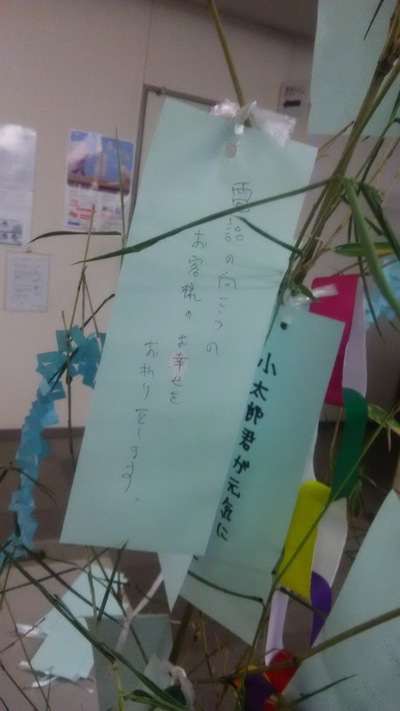 電話の向こうの
お客様のお幸せを
お祈りします。
小太郎君が元気に